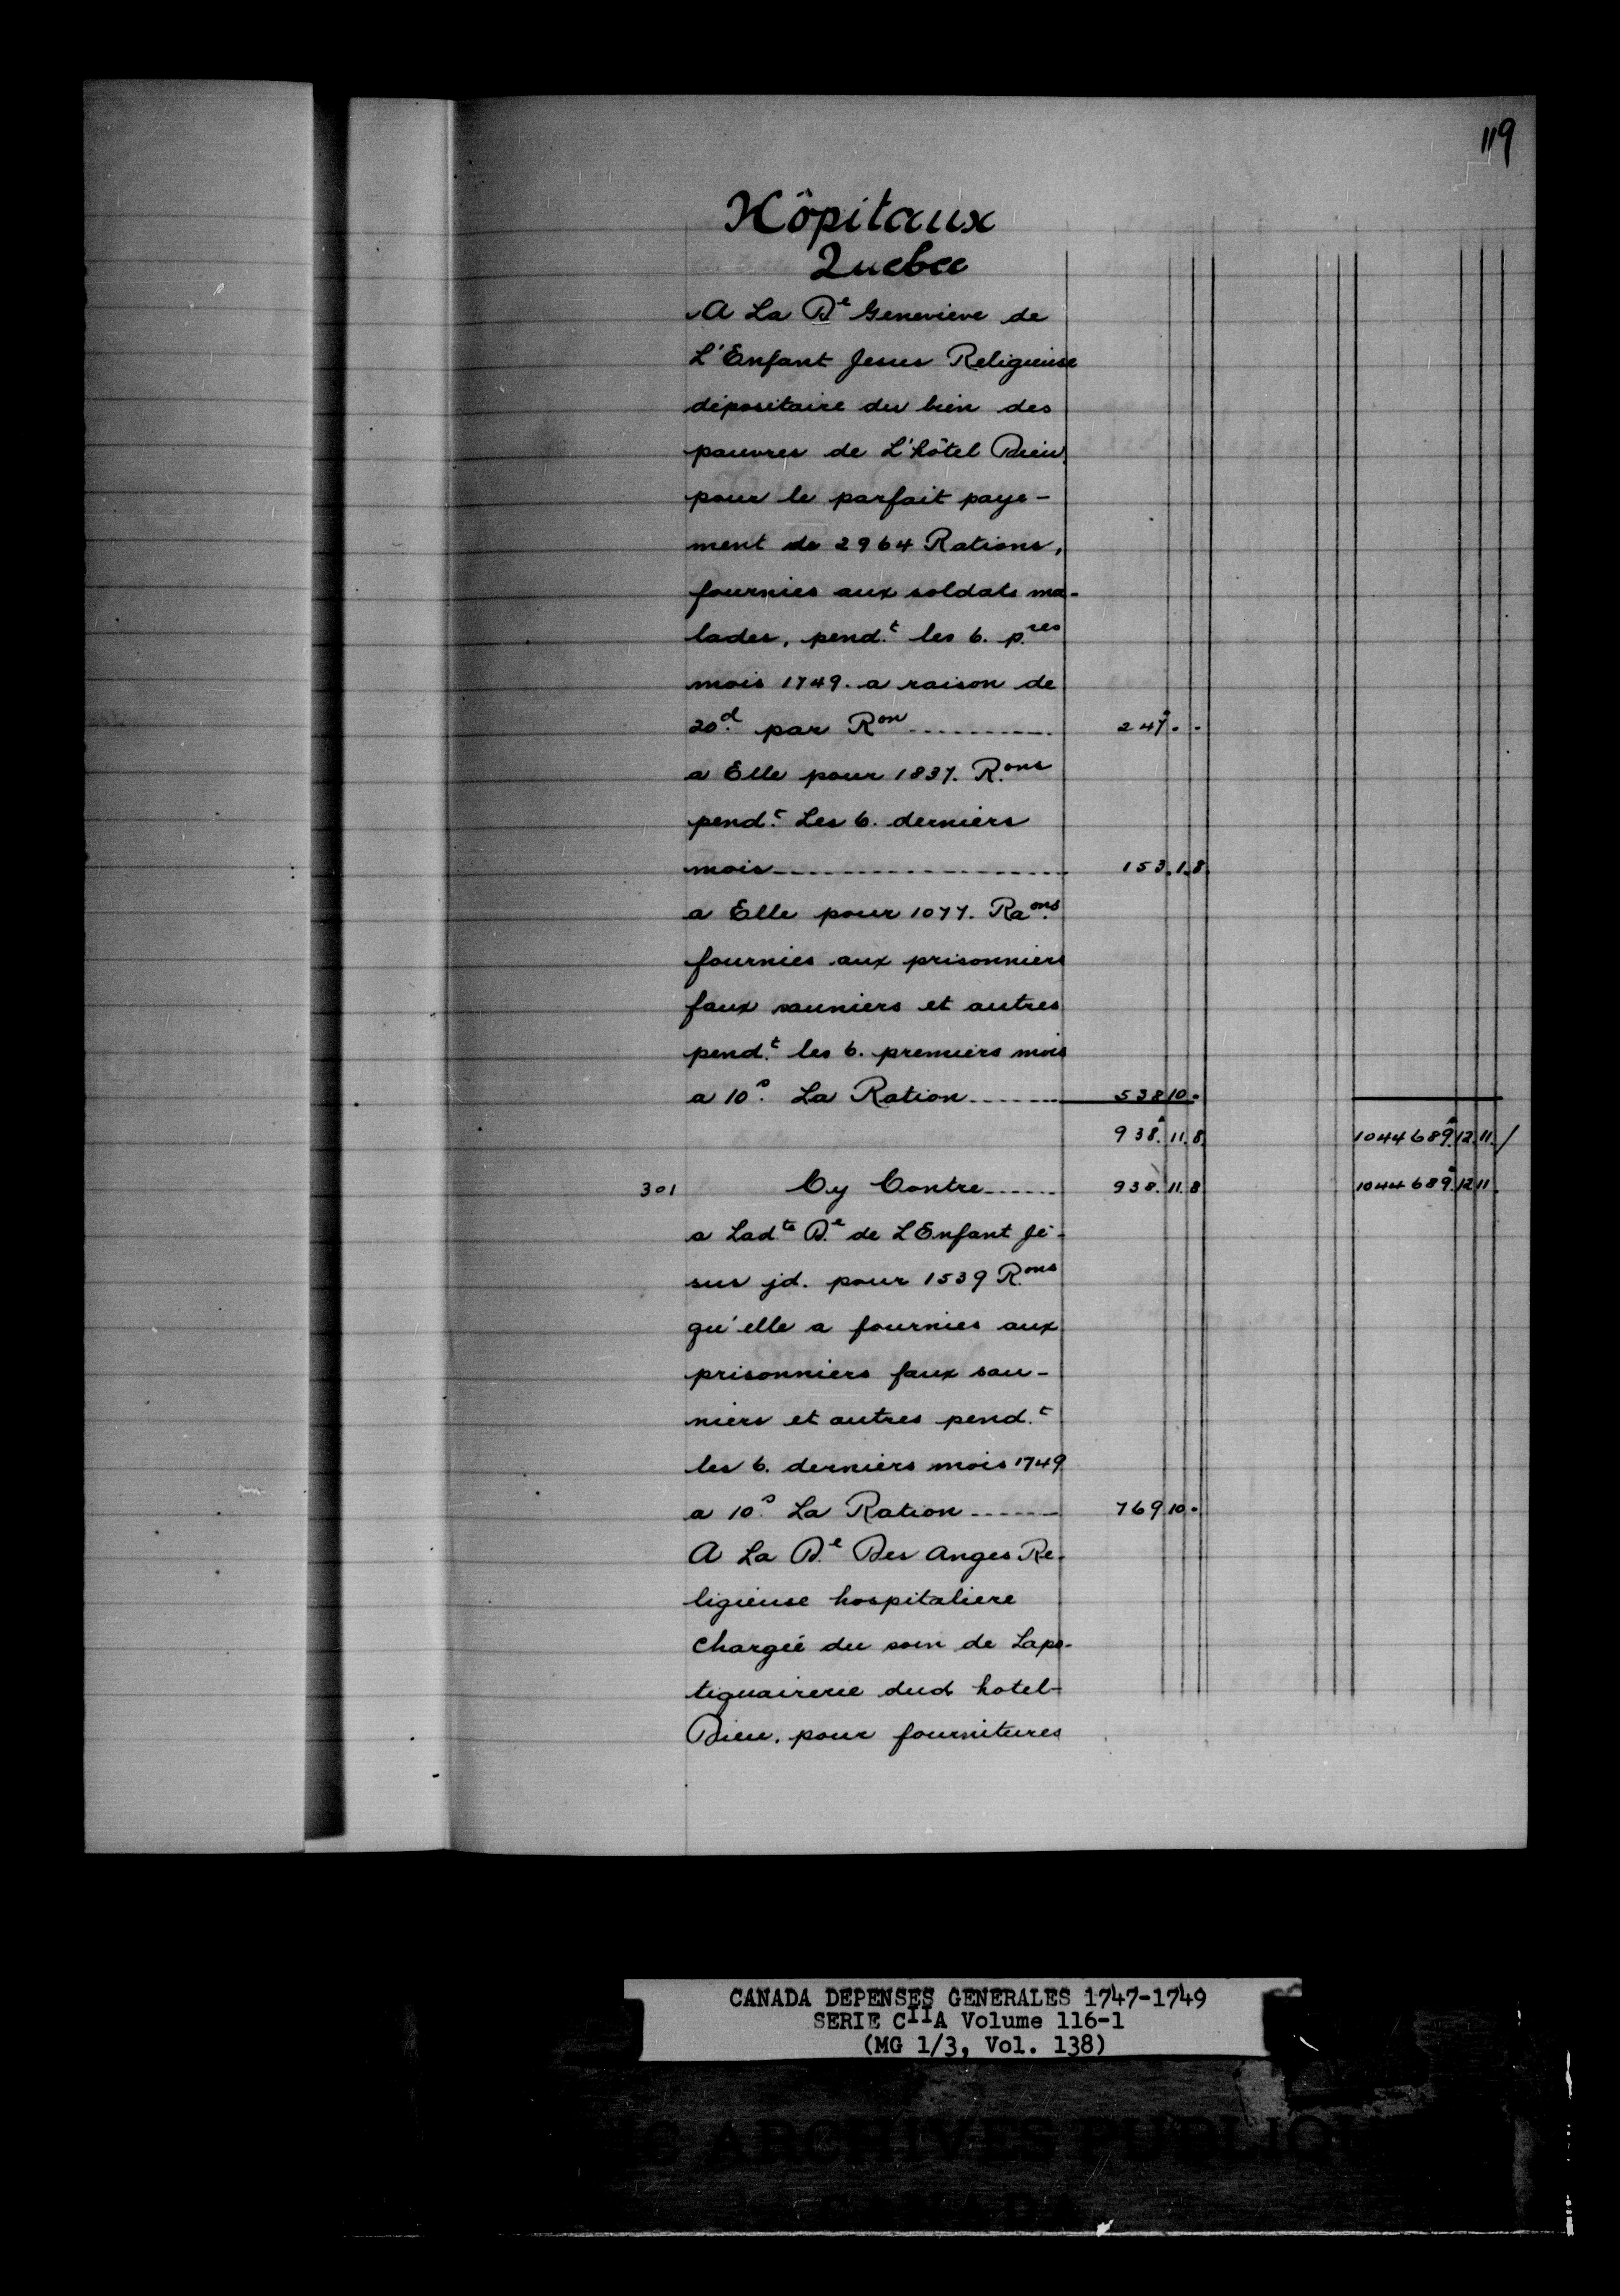 119
Hôpitaux
Quebec
A La D.e Genevieve de
L'Enfant Jesus Religieuse
dépositaire du bien des
pauvres de L'hôtel Dieu,
pour le parfait paye-
ment de 2964 Rations,
fournies aux soldats ma-
lades, pend.t les 6. p.res
mois 1749. a raison de
20.d par Ron ........... 247.. -
a Elle pour 1837. R.ons
pend.t Les 6. derniers
mois .................... 153.1.8.
a Elle pour 1077. Ra.ons
fournies aux prisonniers
faux sauniers et autres
pend.t les 6. premiers mois
a 10.s La Ration ....... 538 10 -
938. 11. 8. 1044689. 12. 11. /
301 Cy Contre ...... 938. 11. 8 1044689. 12 11.
a Lad.te D.e de L'Enfant Jé-
sus jd. pour 1539 R.ons
qu'elle a fournies aux
prisonniers faux sau-
niers et autres pend.t
les 6. derniers mois 1749
a 10.s La Ration ....... 769 10 -
A La D.e Des Anges Re-
ligieuse hospitaliere
chargée du soin de Lapo-
tiquairerie dud hotel-
Dieu, pour fournitures
CANADA DEPENSES GENERALES 1747-1749
SERIE CIIA Volume 116-1
(MG 1/3, Vol. 138)
ARCHIVES